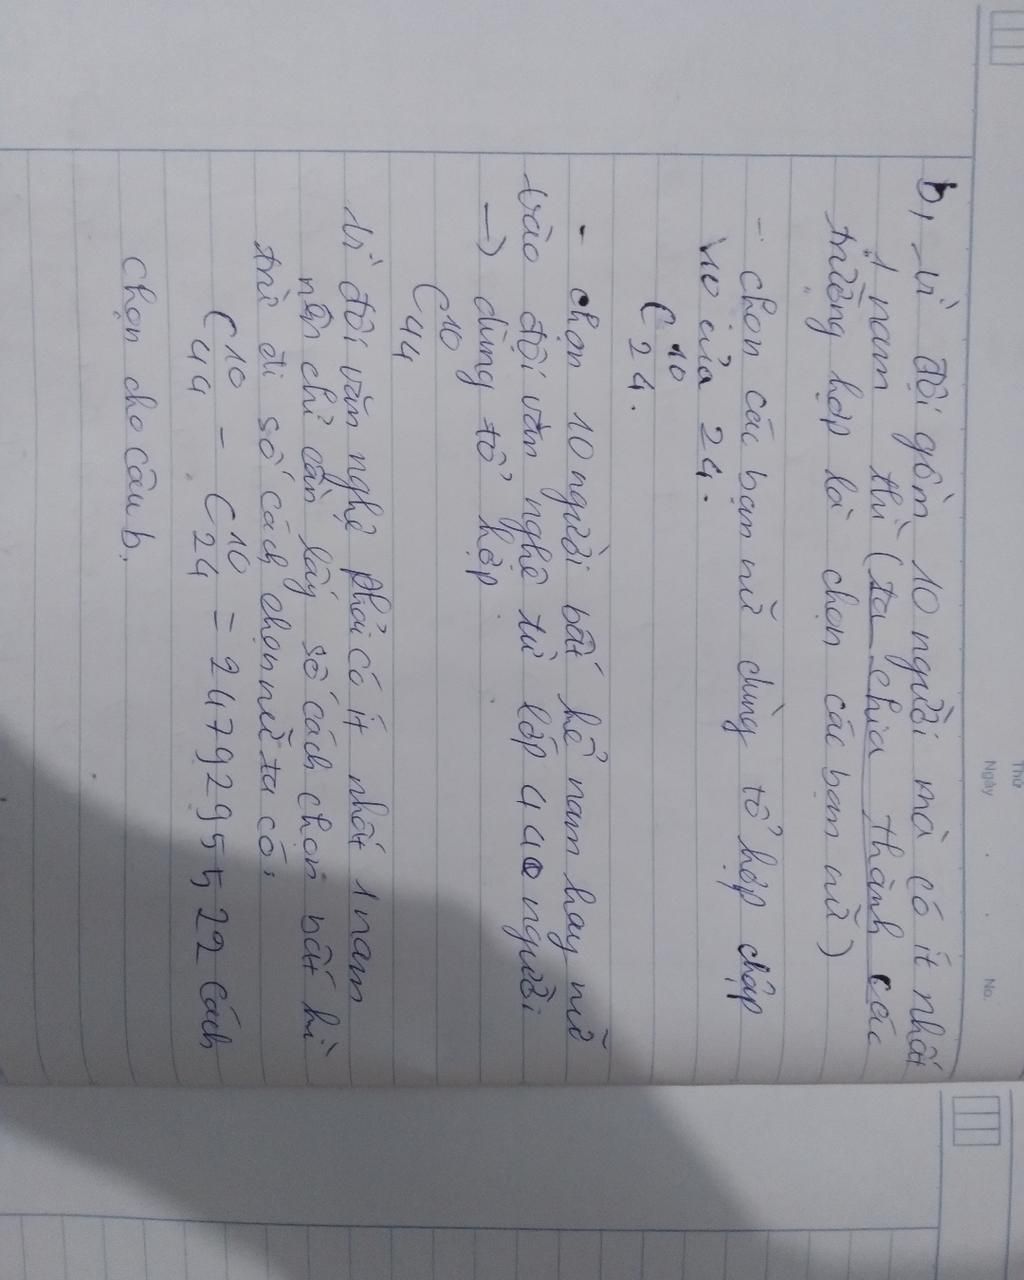 Thứ
Ngày
No.
b, Vì đội gồm 10 người mà có ít nhất
1 nam thì (ta chia thành các
trường hợp là chọn các bạn nữ)
- chọn các bạn nữ dùng tổ hợp chập
10 của 24.
C 10 24.
- chọn 10 người bất kể nam hay nữ
vào đội văn nghệ từ lớp 44 người
→ dùng tổ hợp
C 10 44
Vì đội văn nghệ phải có ít nhất 1 nam
nên chỉ cần lấy số cách chọn bất kì
trừ đi số cách chọn nữ ta có:
C 10 44 - C 10 24 = 2479295522 cách
chọn cho câu b.